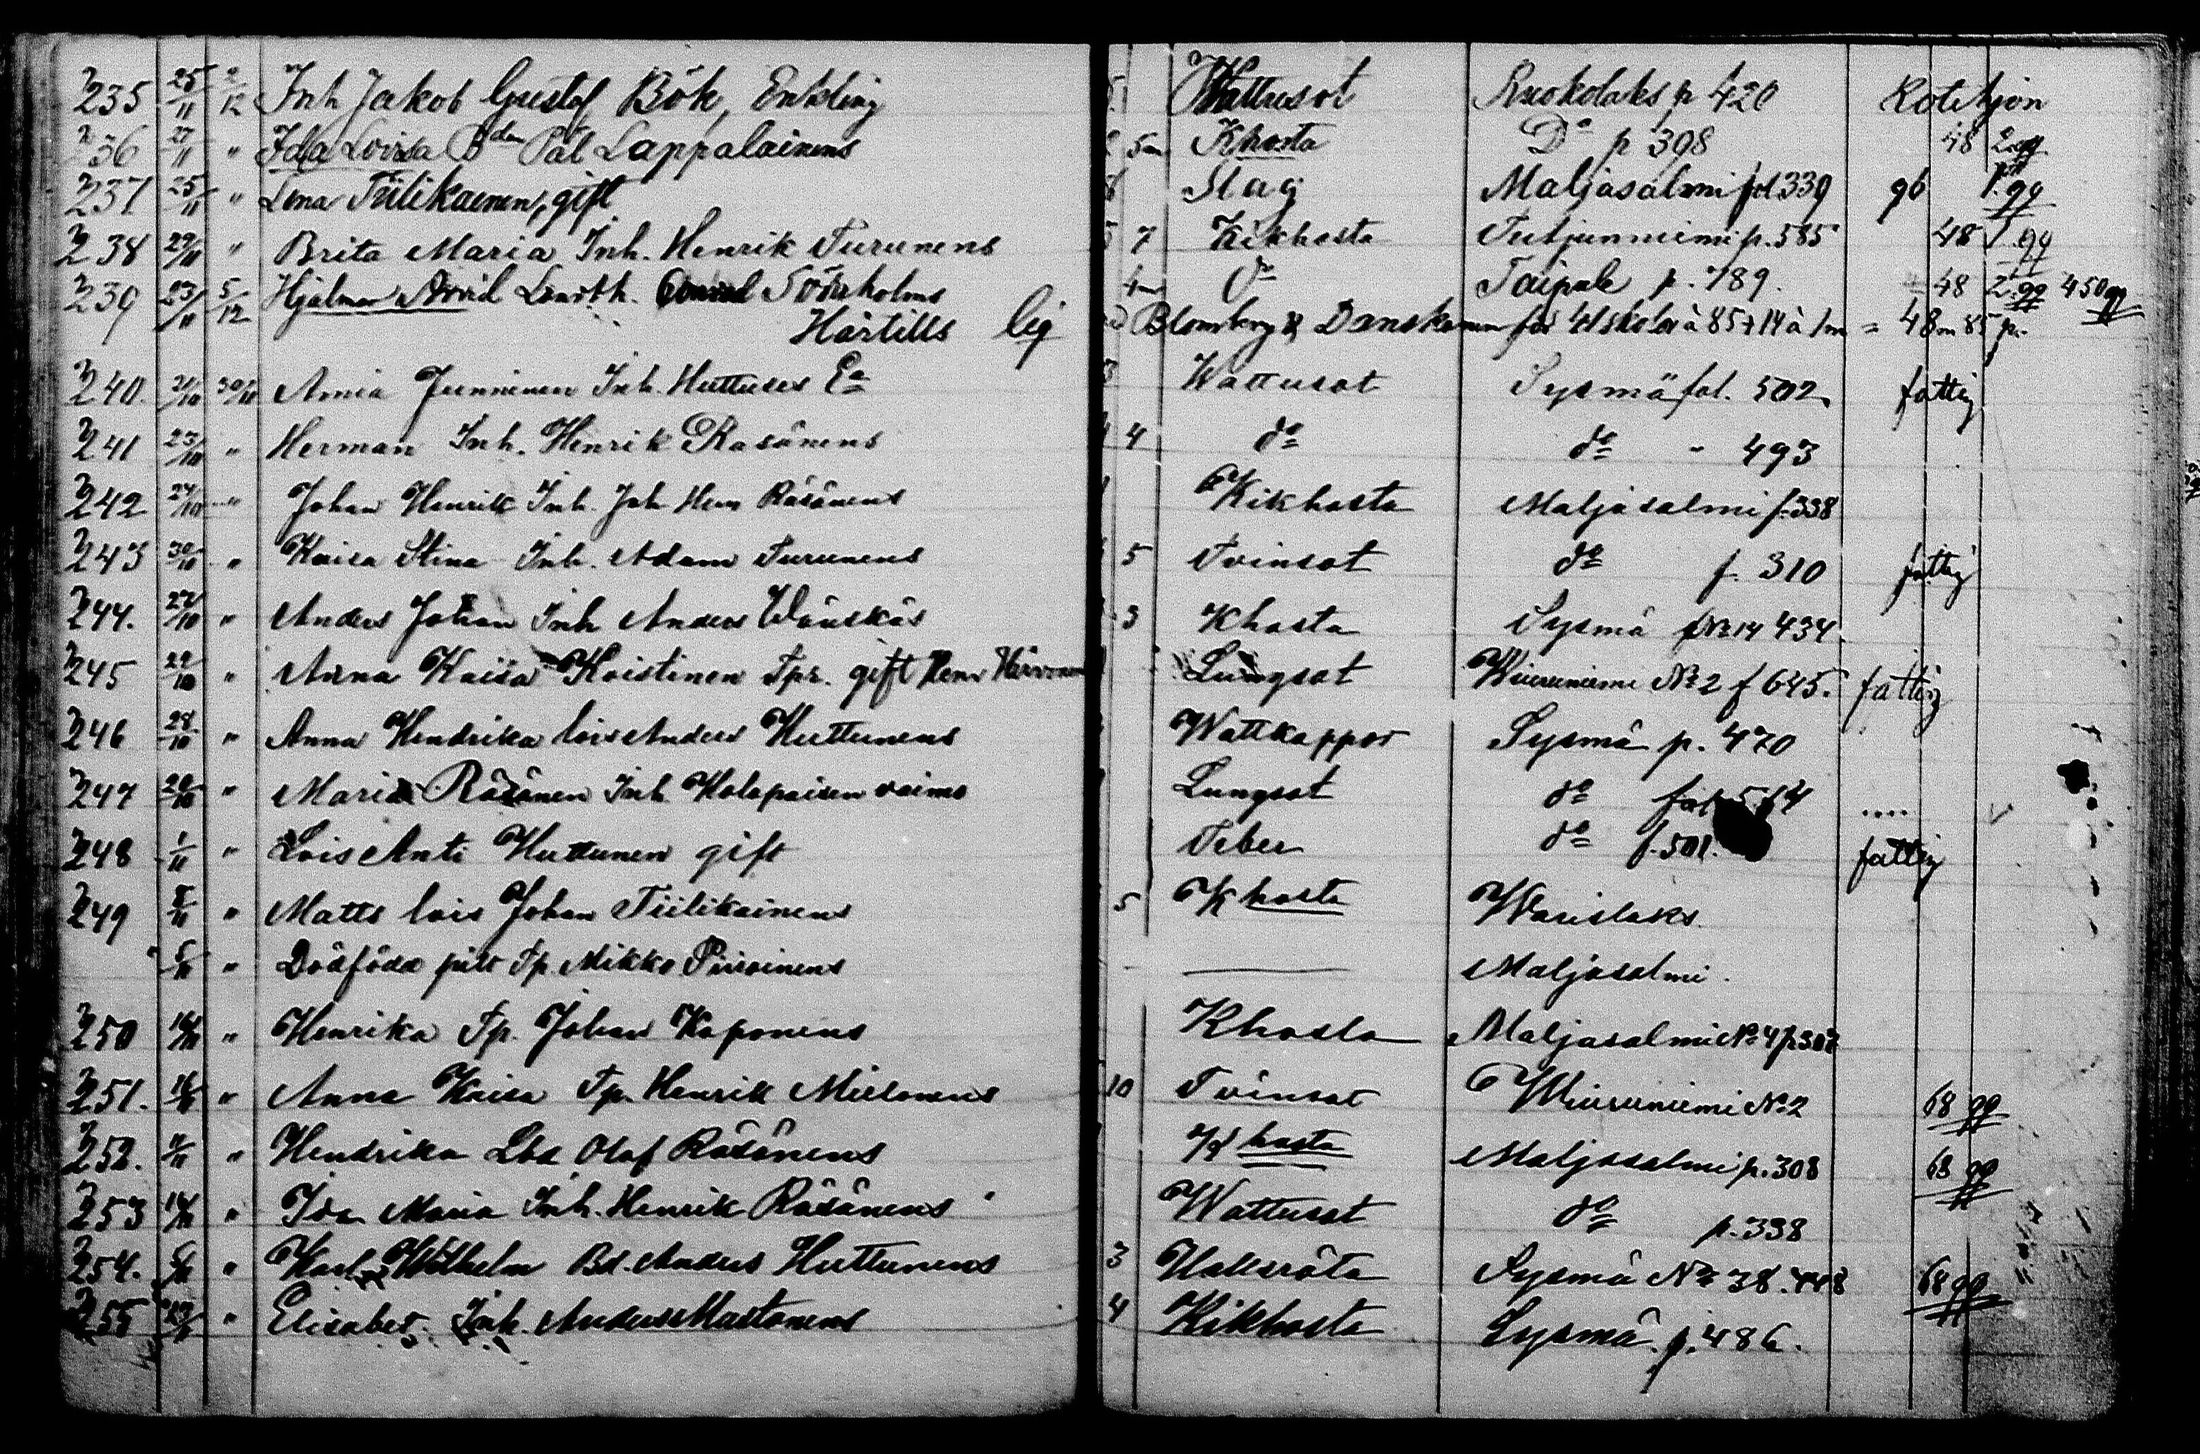 235 25/11 2/12 Inh Jakob Gustaf Bök, Enkling Wattusot Ruokolaks p 420 Rotehjon
236 27/11 " Ida Lovisa Bdn Pål Lappalainens 5m Khosta Do p 398 48 2 gg
237 25/11 " Lena Tiilikainen, gift Slag Maljasalmi fol 339 gb 1. gg
238 29/11 " Brita Maria Inh. Henrik Turunens 7 Kikhosta Tutjunniemi p. 585 48 1 gg
239 23/11 5/12 Hjalmar Arvid Söderholms 4m do Taipale p. 789. 48 2 gg 450 gg
Härtills Blomberg & Danskanen 41 skolor à 85 + 14 à 1m = 48m 85 p.
240. 21/10 30/10 Anna Junninen Inh. Huttuses Ea Wattusot Sysmä fol. 502 fattig
241 23/10 " Herman Inh. Henrik Räsänens 4 do do " 493
242 24/10 " Johan Henrik Inh. Joh Hen Räsänens Kikhosta Maljasalmi f. 338
243 30/10 " Kaisa Stina Inh. Adam Turunens 5 Tvinsot do f. 310 fattig
244. 27/10 " Anders Johan Inh Anders Wänskäs 3 Khosta Sysmä No 14 434
245 29/10 " Anna Kaisa Koistinen Tpr. gift Hen Lungsot Wiuruniemi No 2 f 645. fattig
246 28/10 " Anna Hendrika lois Anders Huttunens Wattkoppor Sysmä p. 470
247 28/10 " Maria Räsänen Inh. Holopaisen vaimo Lungsot do fol 514 ....
248 1/11 " Lois Anti Huttunen gift Feber do f. 501. fattig
249 8/11 " Matts lois Johan Tiilikainens 5 Khosta Warislaks.
" 5/11 " Dödfödd Tp Mikko Piiroinens Maljasalmi.
250 14/11 " Henrika Tp. Johan Kaponens Khosta Maljasalmi No 4 p 307
251. 16/11 " Anna Kaisa Tp. Henrik Mielonens 10 Tvinsot Wiuruniemi No 2 68 gg
252. 11/11 " Hendrika Lbd Olof Räsänens Khosta Maljasalmi p. 308 68 gg
253 14/11 " Ida Maria Inh. Henrik Räsänens Wattusot do p. 338
254. " Karl Wilhelm Bd. Anders Huttunens 3 Halsröta Sysmä No 38. 448 68 gg
255 " Elisabet Inh. Anders Mustonens 4 Kikhosta Sysmä. p. 486.